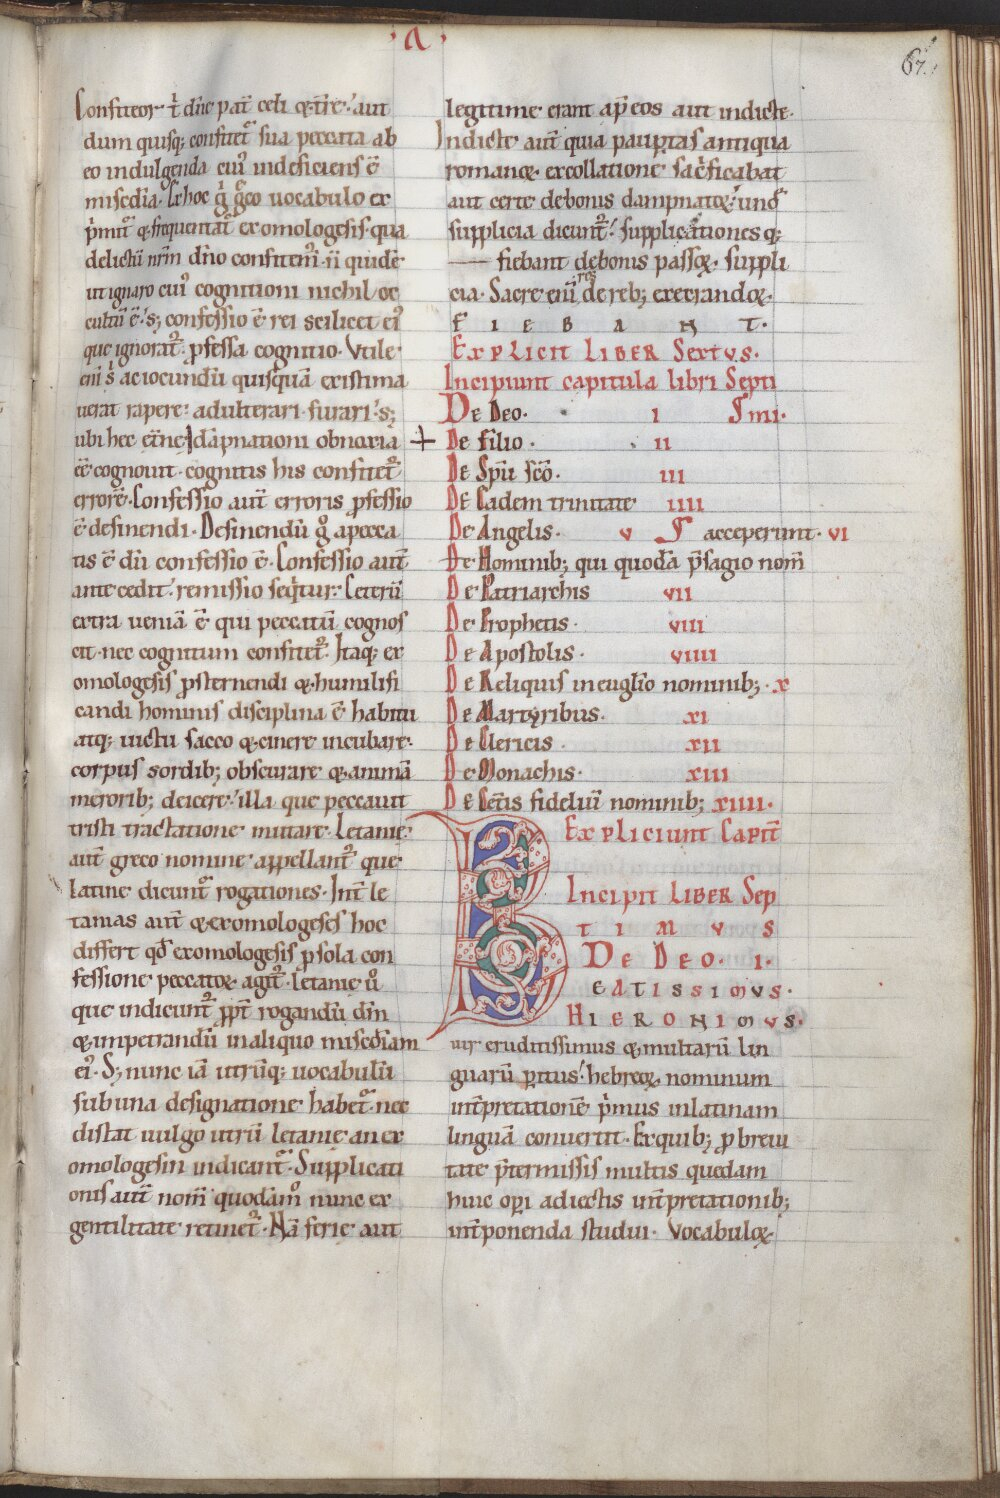 · A ·
67.
Confiteor t̓ dn̄e pat̄ celi ⁊ tr̄e· aut
dum quisq; confitet᷑ sua peccata ab
eo indulgenda cui᷒ indeficiens ē
misc̄dia· Ex hoc g̓ gͤco uocabulo ex
p̓mit᷑ ⁊ frequentat᷑ exomologesis· qua
delictū nr̄m dn̄o confitem᷒· ñ quidē
ut ignaro cui᷒ cognitioni nichil oc
cultū ē· s; confessio ē rei scilicet ei᷒
que ignorat᷑ ꝓfessa cognitio· Vtile
eni s̓ ac iocundū quisquā existima
uerat rapere· adulterari· furari· s;
ubi hec et̄ne dāpnationi obnoxia
ēe cognouit· cognitis his confitet᷑
errorē· Confessio aut̄ erroris ꝓfessio
ē desinendi· Desinendū g̊ a pecca
tis ē dū confessio ē· Confessio aut̄
antecedit· remissio seq̓tur· Ceterū
extra ueniā ē qui peccatū cognos
cit· nec cognitum confitet᷑· Itaq; ex
omologesis ꝓsternendi ⁊ humilifi
candi hominis disciplina ē habitu
atq; uictu sacco ⁊ cinere incubare·
corpus sordib; obscurare ⁊ animā
merorib; deicere· illa que peccauit
tristi tractatione mutare· Letanie
aut̄ greco nomine appellant᷑ que
latine dicunt᷑ rogationes· Int̄ le
tanias aut̄ ⁊ exomologeses hoc
differt qd̄ exomologesis ꝓ sola con
fessione peccatoꝝ agit᷑· Letanie ů
que indicunt᷑ ꝓpt̄ rogandū dm̄
⁊ impetrandū in aliquo misc̄diam
ei᷒· S; nunc iā utrūq; uocabulū
sub una designatione habet᷑· nec
distat uulgo utrū letanie an ex
omologesin indicant᷑· Supplicati
onis aut̄ nom̄ quodām᷒ nunc ex
gentilitate retinet᷑· Nā ferie aut
legitime erant ap̄ eos aut indicte·
Indicte aut̄ quia paup̱tas antiqua
romanoꝝ ex collatione sac̓ficabat
aut certe de bonis dampnatoꝝ· und̄
supplicia dicunt᷑· supplicationes q;
fiebant de bonis passoꝝ· suppli
cia· Sacre eni res de reb; execrandoꝝ·
F I E B A N T·
Explicit liber Sextus·
Incipiunt capitula libri Septi
De Deo· I ¶mi·
De Filio· II
De Spū scō· III
De Eadem trinitate IIII
De Angelis· V ¶ acceperunt· VI
De Hominib; qui quodā p̄sagio nom̄
De Patriarchis VII
De Prophetis· VIII
De Apostolis· VIIII
De Reliquis in eug̱lio nominib;· X
De Martyribus· XI
De Clericis· XII
De Monachis· XIII
De Cet̄is fideliū nominib; XIIII·
Expliciunt Capit̄
Incipit Liber Sep
T I M V S
De Deo· I·
BEATISSIMVS·
HIERONIMVS·
uir eruditissimus ⁊ multarū lin
guarū p̱itus· hebreoꝝ nominum
int̄pretationē p̓mus in latinam
linguā conuertit· Ex quib; ꝓ breui
tate p̄termissis multis quedam
huic op̱i adiectis int̄pretationib;
int̄ponenda studui· Vocabuloꝝ